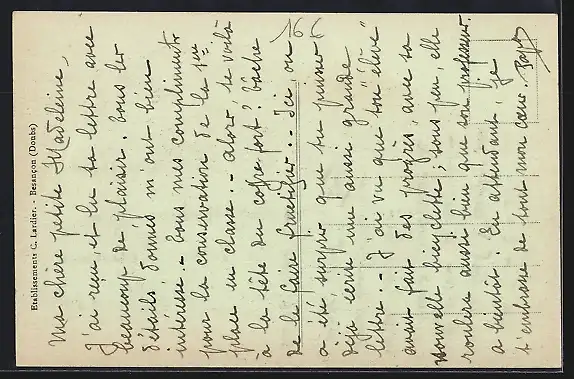 Etablissements C. Lardier. - Besançon (Doubs)
Ma chère petite Madeleine,
J'ai reçu, et lu ta lettre avec
beaucoup de plaisir. Tous les
détails donnés m'ont bien
intéressé. - Tous mes compliments
pour la conservation de la 1ère
place en classe. - Alors, te voilà
à la tête du coffre-fort? tâche
de le faire fructifier. - Ici on
a été surpris que tu puisses
déjà écrire une aussi grande
lettre. - J'ai vu que ton "élève"
avait fait des progrès, avec sa
nouvelle bicyclette; sous peu, elle
roulera aussi bien que son professeur.
A bientôt. En attendant, je
t'embrasse de tout mon cœur.
166